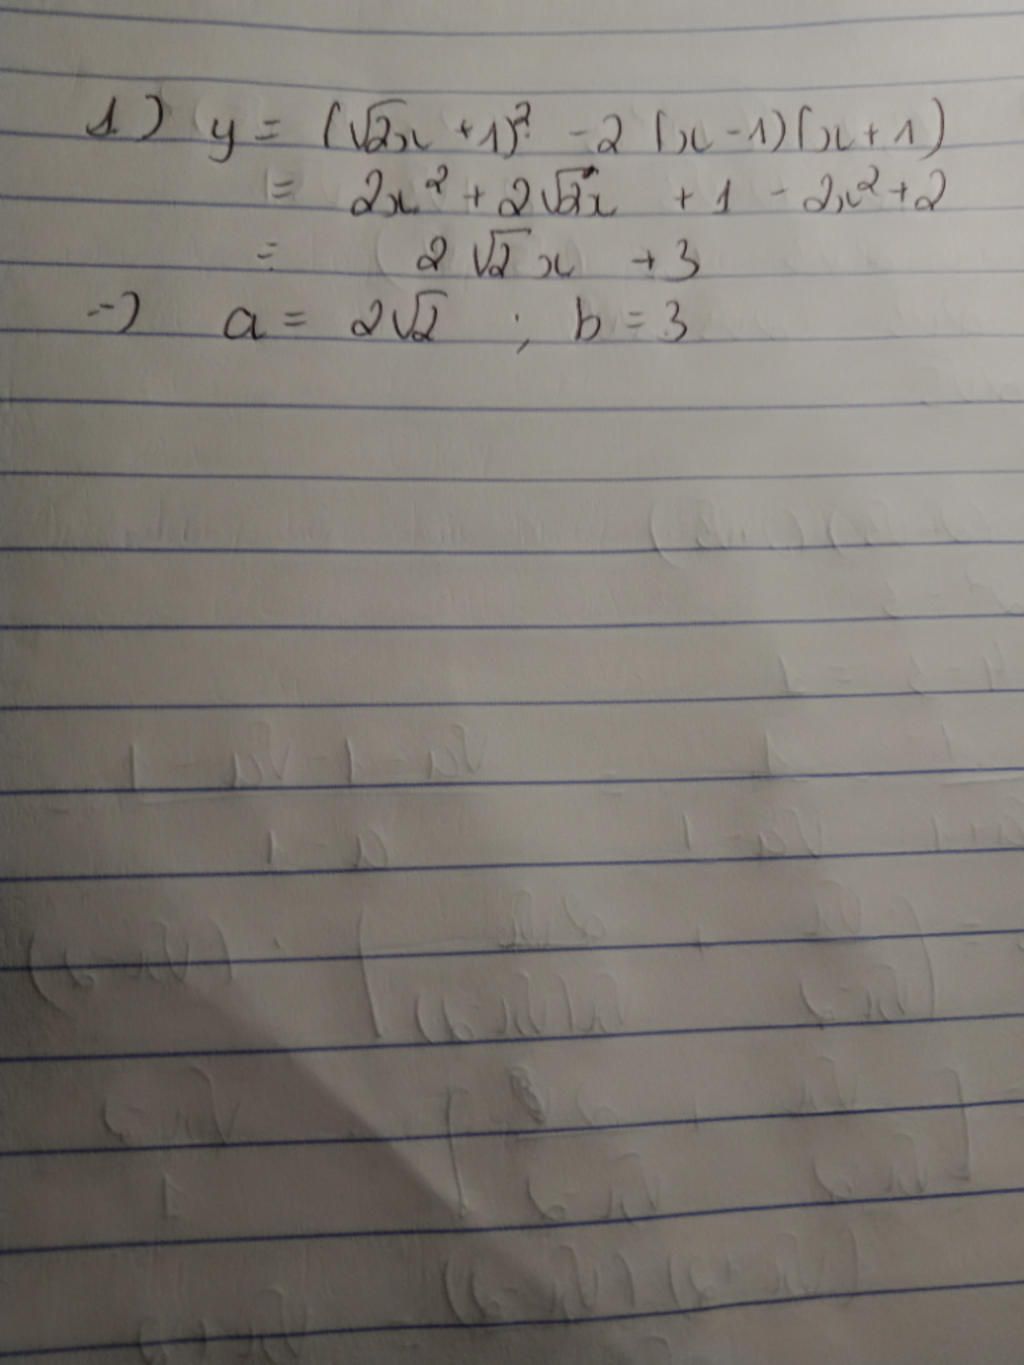 1) y = (√2x + 1)² - 2 (x - 1)(x + 1)
= 2x² + 2√2x + 1 - 2x² + 2
= 2√2 x + 3
→ a = 2√2 ; b = 3